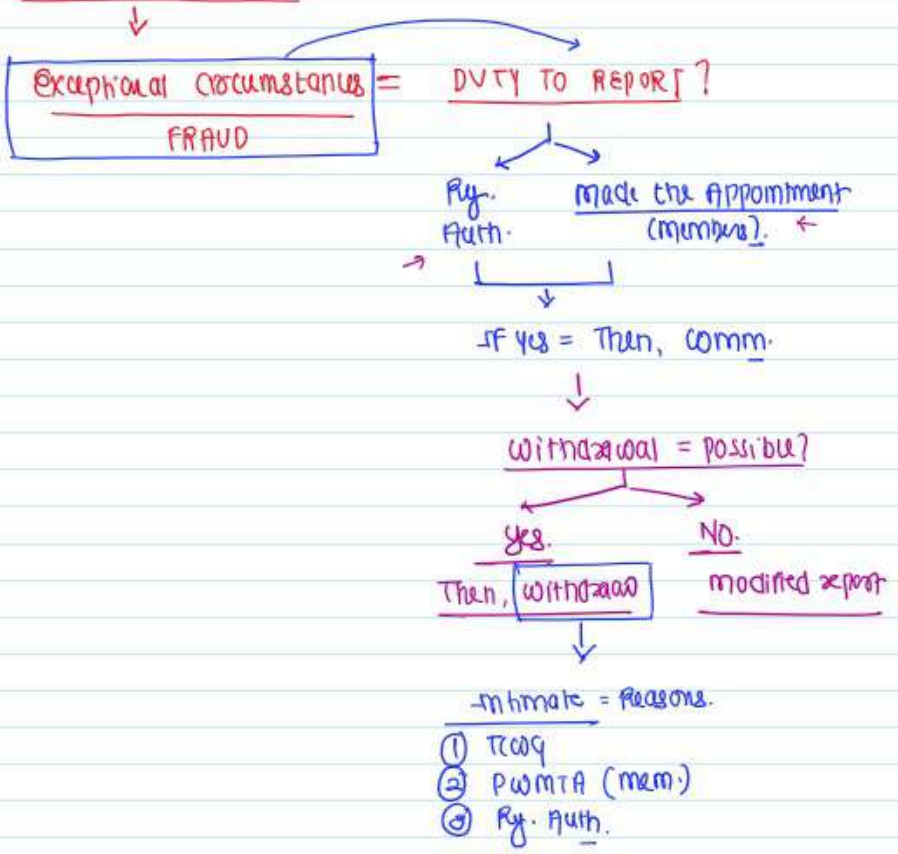 Exceptional Circumstances = DUTY TO REPORT?
FRAUD
Ry. Made the Appointment
Auth. (members).
If yes = Then, comm.
Withdrawal = possible?
Yes. NO.
Then, withdraw modified report
Intimate = Reasons.
① TCWG
② PWMTA (mem.)
③ Ry. Auth.